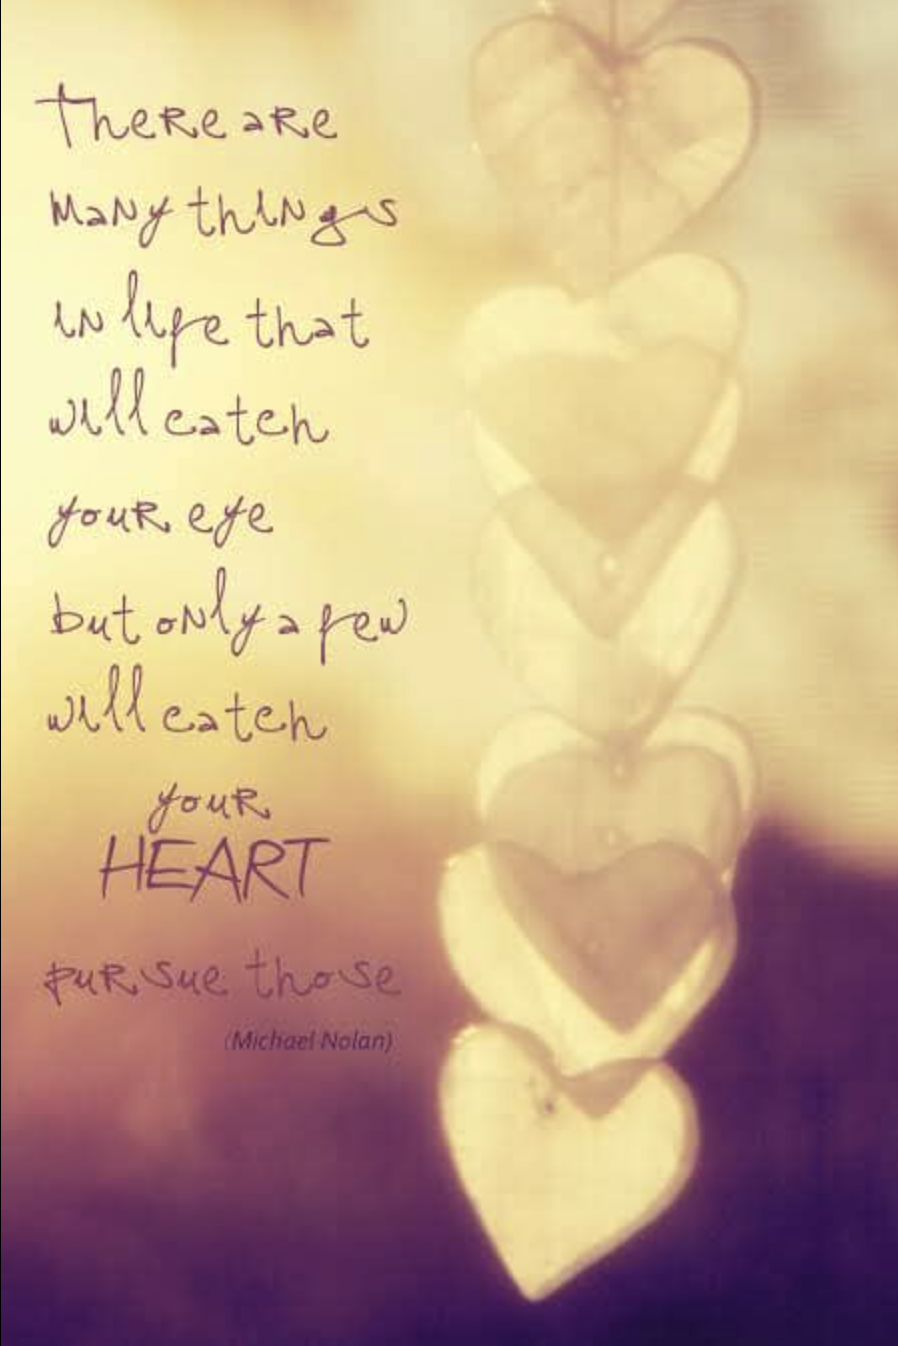 There are
many things
in life that
will catch
your eye
but only a few
will catch
your
HEART
pursue those
(Michael Nolan)